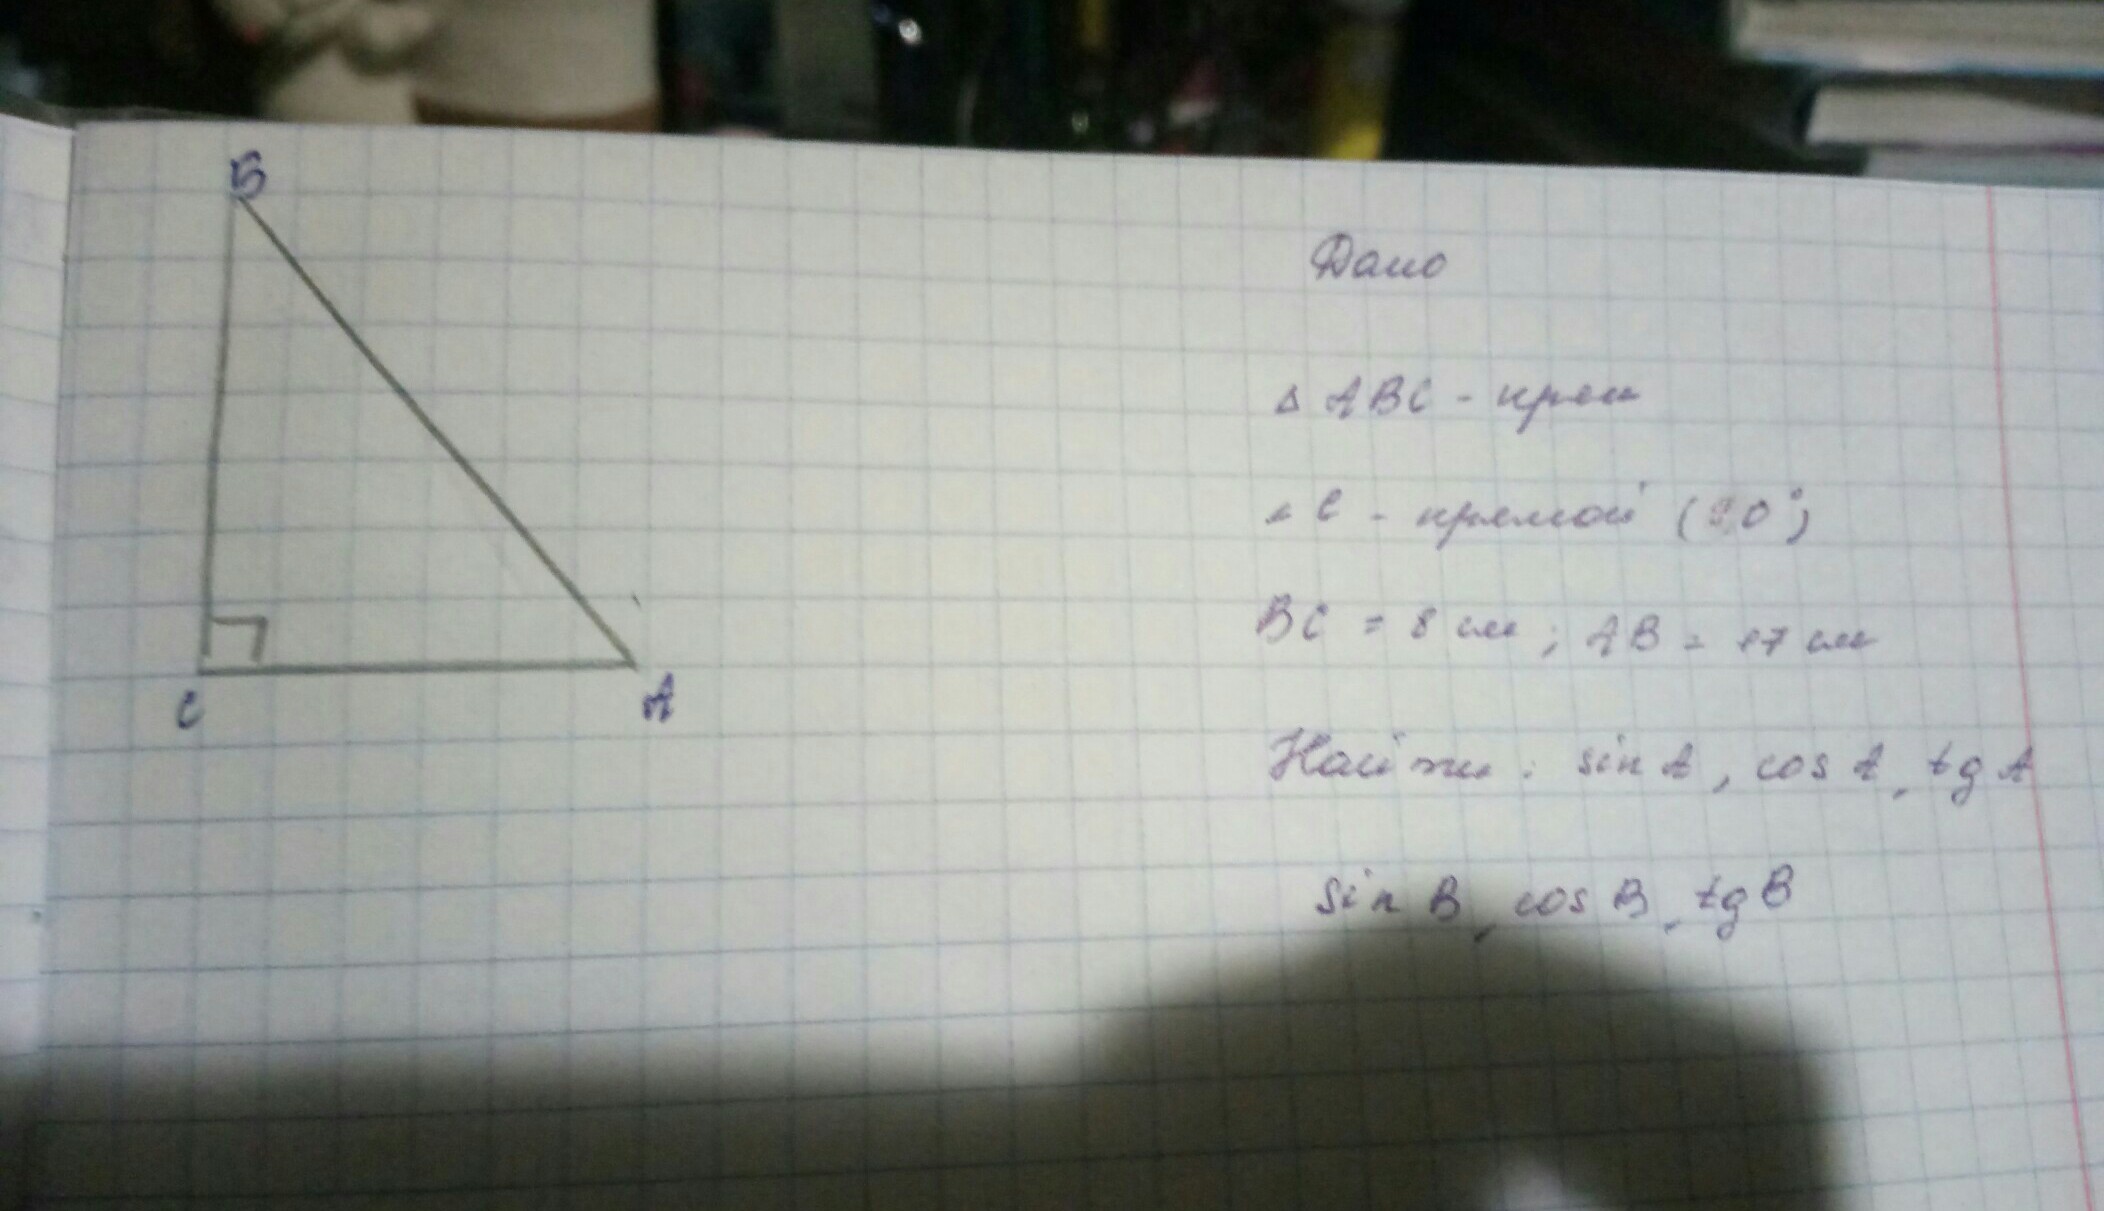 B
C
A
Дано
△ ABC - прям
∠ C - прямой (90°)
BC = 8 см ; AB = 17 см
Найти : sin A, cos A, tg A
sin B, cos B, tg B